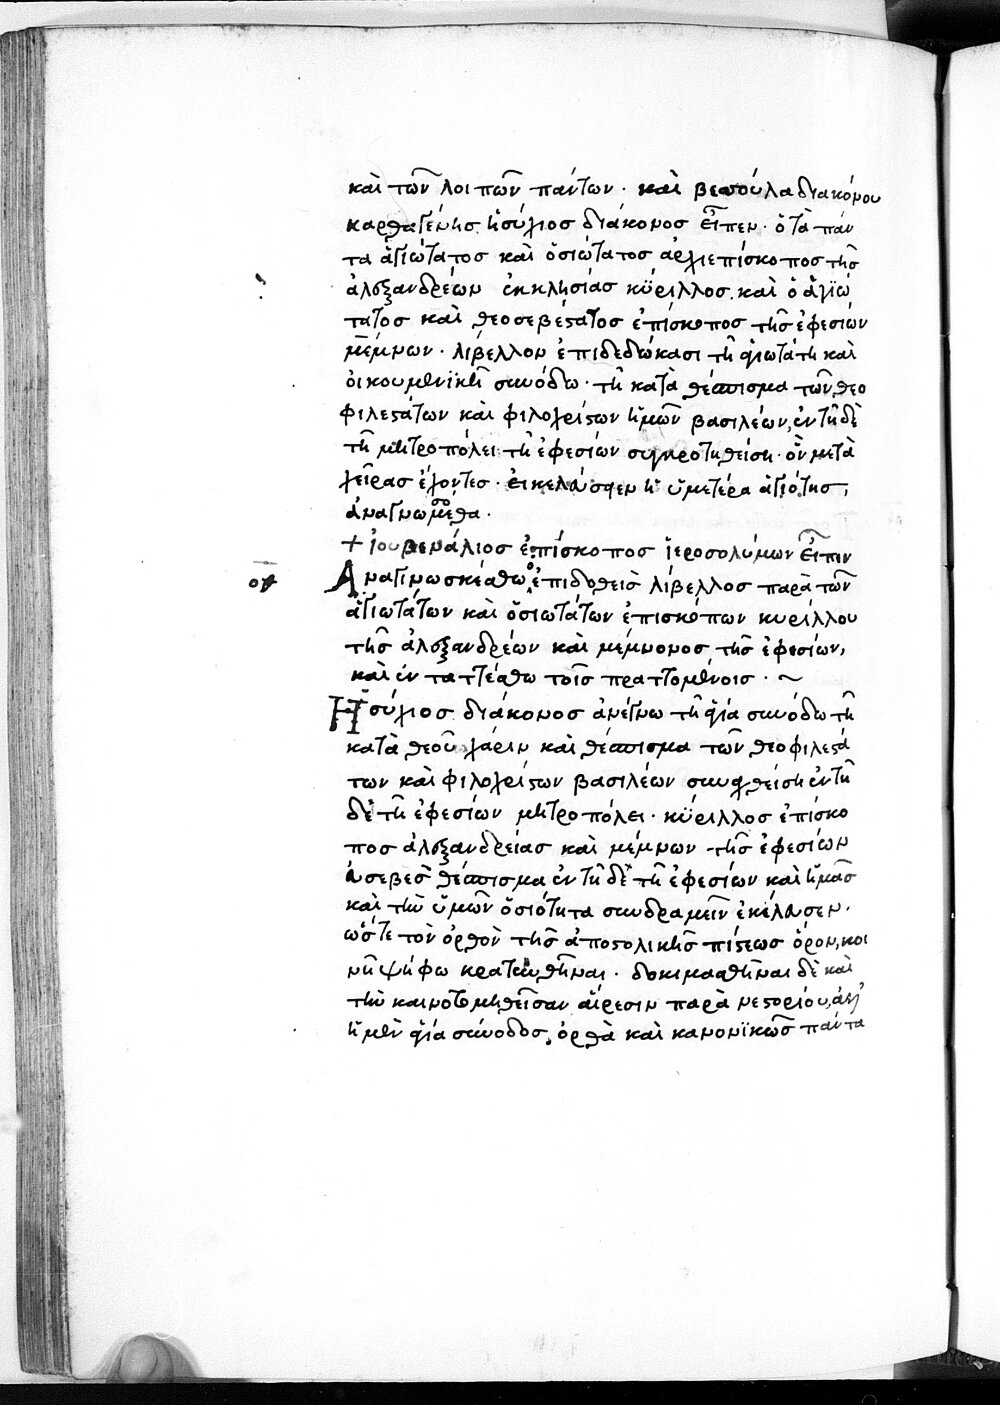 καὶ τῶν λοιπῶν πάντων · καὶ βεσσούλα διακόνου
καρθαγένης ἡσύχιος διάκονος εἶπεν · ὁ τὰ πάν
τα ἁγιώτατος καὶ ὁσιώτατος ἀρχιεπίσκοπος τῆς
ἀλεξανδρέων ἐκκλησίας κύριλλος. καὶ ὁ ἁγιώ
τατος καὶ θεοσεβέστατος ἐπίσκοπος τῆς ἐφεσίων
μέμνων · λίβελλον ἐπιδεδώκασι τῇ ἁγιωτάτῃ καὶ
οἰκουμενϊκῇ συνόδω · τῇ κατὰ θέσπισμα τῶν θεο
φιλεστάτων καὶ φιλοχρίστων ἡμῶν βασιλέων, ἐν τῇδε
τῇ μητροπόλει τῇ ἐφεσίων συγκροτηθείσῃ · ὃν μετὰ
χεῖρας ἔχοντες · εἰ κελεύσειεν ἡ ὑμετέρα ἁγιότης,
ἀναγνωσόμεθα ·
+ ἰουβενάλιος ἐπίσκοπος ἱεροσολύμων εἶπεν
Ἀναγινωσκέσθω ὁ ἐπιδοθεὶς λίβελλος παρὰ τῶν
ἁγιωτάτων καὶ ὁσιωτάτων ἐπισκόπων κυρίλλου
τῆς ἀλεξανδρέων καὶ μέμνονος τῆς ἐφεσίων,
καὶ ἐνταττέσθω τοῖς πραττομένοις · ~
Ἡσύχιος διάκονος ἀνέγνω τῇ ἁγία συνόδω τῇ
κατὰ θεοῦ χάριν καὶ θέσπισμα τῶν θεοφιλεστά
των καὶ φιλοχρίστων βασιλέων συναχθείσῃ ἐν τῇ
δε τῇ ἐφεσίων μητροπόλει · κύριλλος ἐπίσκο
πος ἀλεξανδρείας καὶ μέμνων τῆς ἐφεσίων
εὐσεβὲς θέσπισμα ἐν τῇδε τῇ ἐφεσίων καὶ ἡμᾶς
καὶ τὴν ὑμῶν ὁσιότητα συνδραμεῖν ἐκέλευσεν.
ὥστε τὸν ὀρθὸν τῆς ἀποστολικῆς πίστεως ὅρον, κοι
νῇ ψήφω κρατυνθῆναι · δοκιμασθῆναι δὲ καὶ
τὴν καινοτομηθεῖσαν αἵρεσιν παρὰ νεστορίου,
ἡ μὲν ἁγία σύνοδος, ὀρθὰ καὶ κανονϊκῶς πάντα